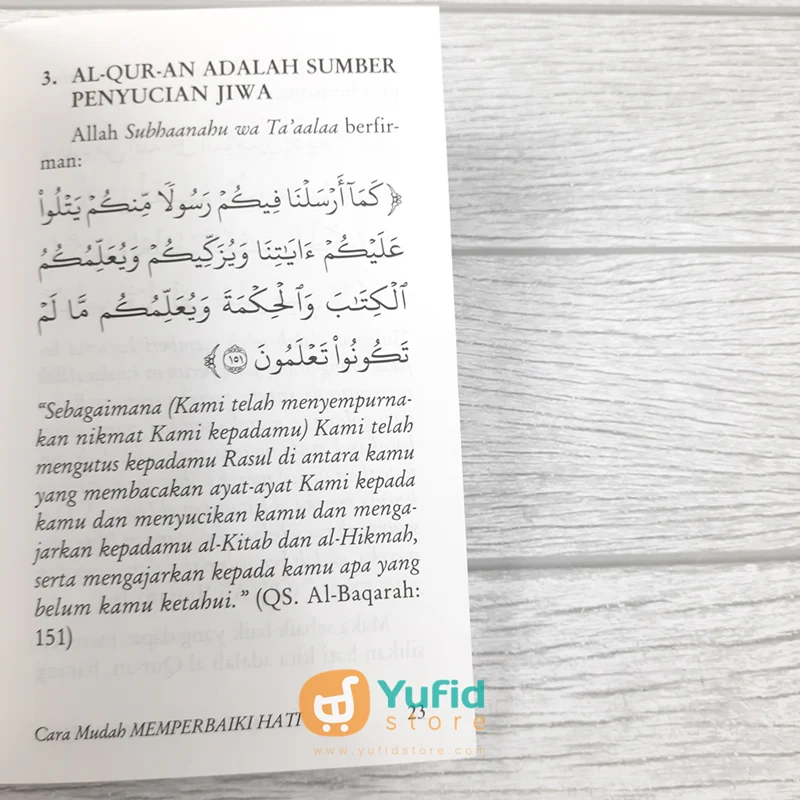 3. AL-QUR-AN ADALAH SUMBER
PENYUCIAN JIWA
Allah Subhaanahu wa Ta’aalaa berfir-
man:
﴿ كَمَآ أَرْسَلْنَا فِيكُمْ رَسُولًا مِّنكُمْ يَتْلُوا۟
عَلَيْكُمْ ءَايَـٰتِنَا وَيُزَكِّيكُمْ وَيُعَلِّمُكُمُ
ٱلْكِتَـٰبَ وَٱلْحِكْمَةَ وَيُعَلِّمُكُم مَّا لَمْ
تَكُونُوا۟ تَعْلَمُونَ ١٥١ ﴾
“Sebagaimana (Kami telah menyempurna-
kan nikmat Kami kepadamu) Kami telah
mengutus kepadamu Rasul di antara kamu
yang membacakan ayat-ayat Kami kepada
kamu dan menyucikan kamu dan menga-
jarkan kepadamu al-Kitab dan al-Hikmah,
serta mengajarkan kepada kamu apa yang
belum kamu ketahui.” (QS. Al-Baqarah:
151)
Cara Mudah MEMPERBAIKI HATI 23
Yufid
store
www.yufidstore.com